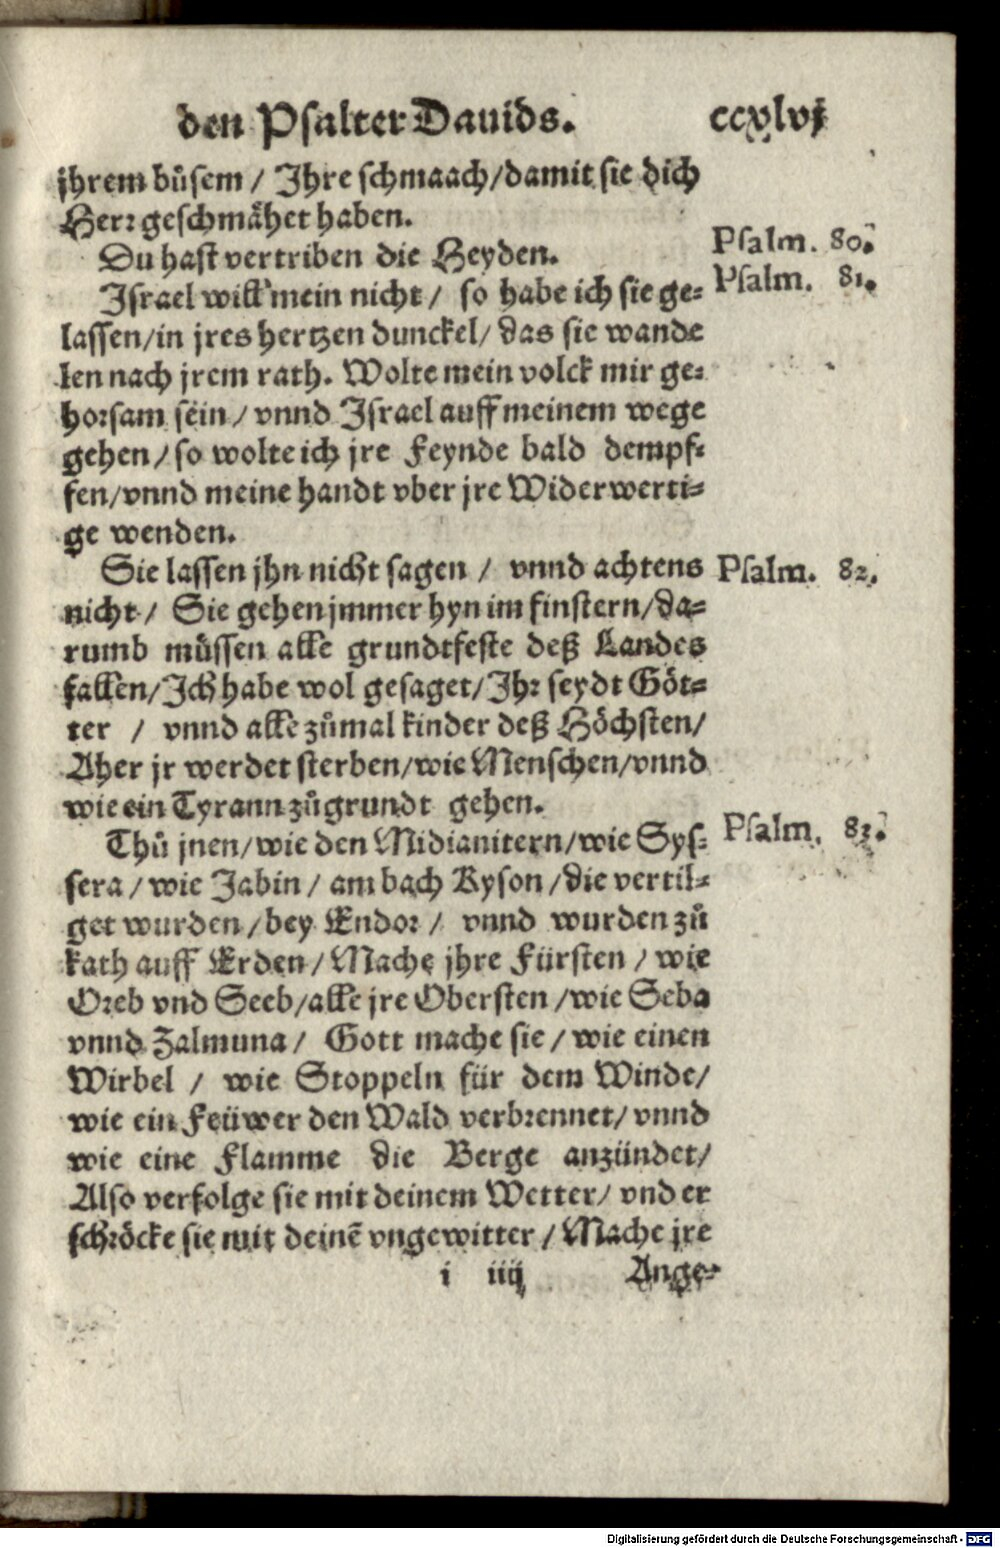 den Psalter Dauids. ccxlvj
jhrem bůsem / Ihre schmaach/damit sie dich
Herr geschmåhet haben.
Du hast vertriben die Heyden. Psalm. 80.
Israel will mein nicht / so habe ich sie ge= Psalm. 81.
lassen/in jres hertzen dunckel/das sie wande
len nach jrem rath. Wolte mein volck mir ge=
horsam sein / vnnd Israel auff meinem wege
gehen / so wolte ich jre Feynde bald dempf=
fen/vnnd meine handt vber jre Widerwerti=
ge wenden.
Sie lassen jhn nicht sagen / vnnd achtens Psalm. 82.
nicht / Sie gehen jmmer hyn im finstern/da=
rumb můssen alle grundtfeste deß Landes
fallen/Ich habe wol gesaget/Ihr seydt Göt=
ter / vnnd alle zůmal kinder deß Höchsten/
Aher jr werdet sterben/wie Menschen/vnnd
wie ein Tyrann zůgrundt gehen.
Thů jnen/wie den Midianitern/wie Sys= Psalm. 83.
sera / wie Jabin / am bach Kyson /die vertil=
get wurden / bey Endor / vnnd wurden zů
kath auff Erden / Mache jhre Fürsten / wie
Oreb vnd Seeb/alle jre Obersten /wie Seba
vnnd Zalmuna / Gott mache sie / wie einen
Wirbel / wie Stoppeln für dem Winde/
wie ein Feüwer den Wald verbrennet/ vnnd
wie eine Flamme die Berge anzündet/
Also verfolge sie mit deinem Wetter/ vnd er
schröcke sie mit deinē vngewitter / Mache jre
i iiij Ange=
Digitalisierung gefördert durch die Deutsche Forschungsgemeinschaft - DFG